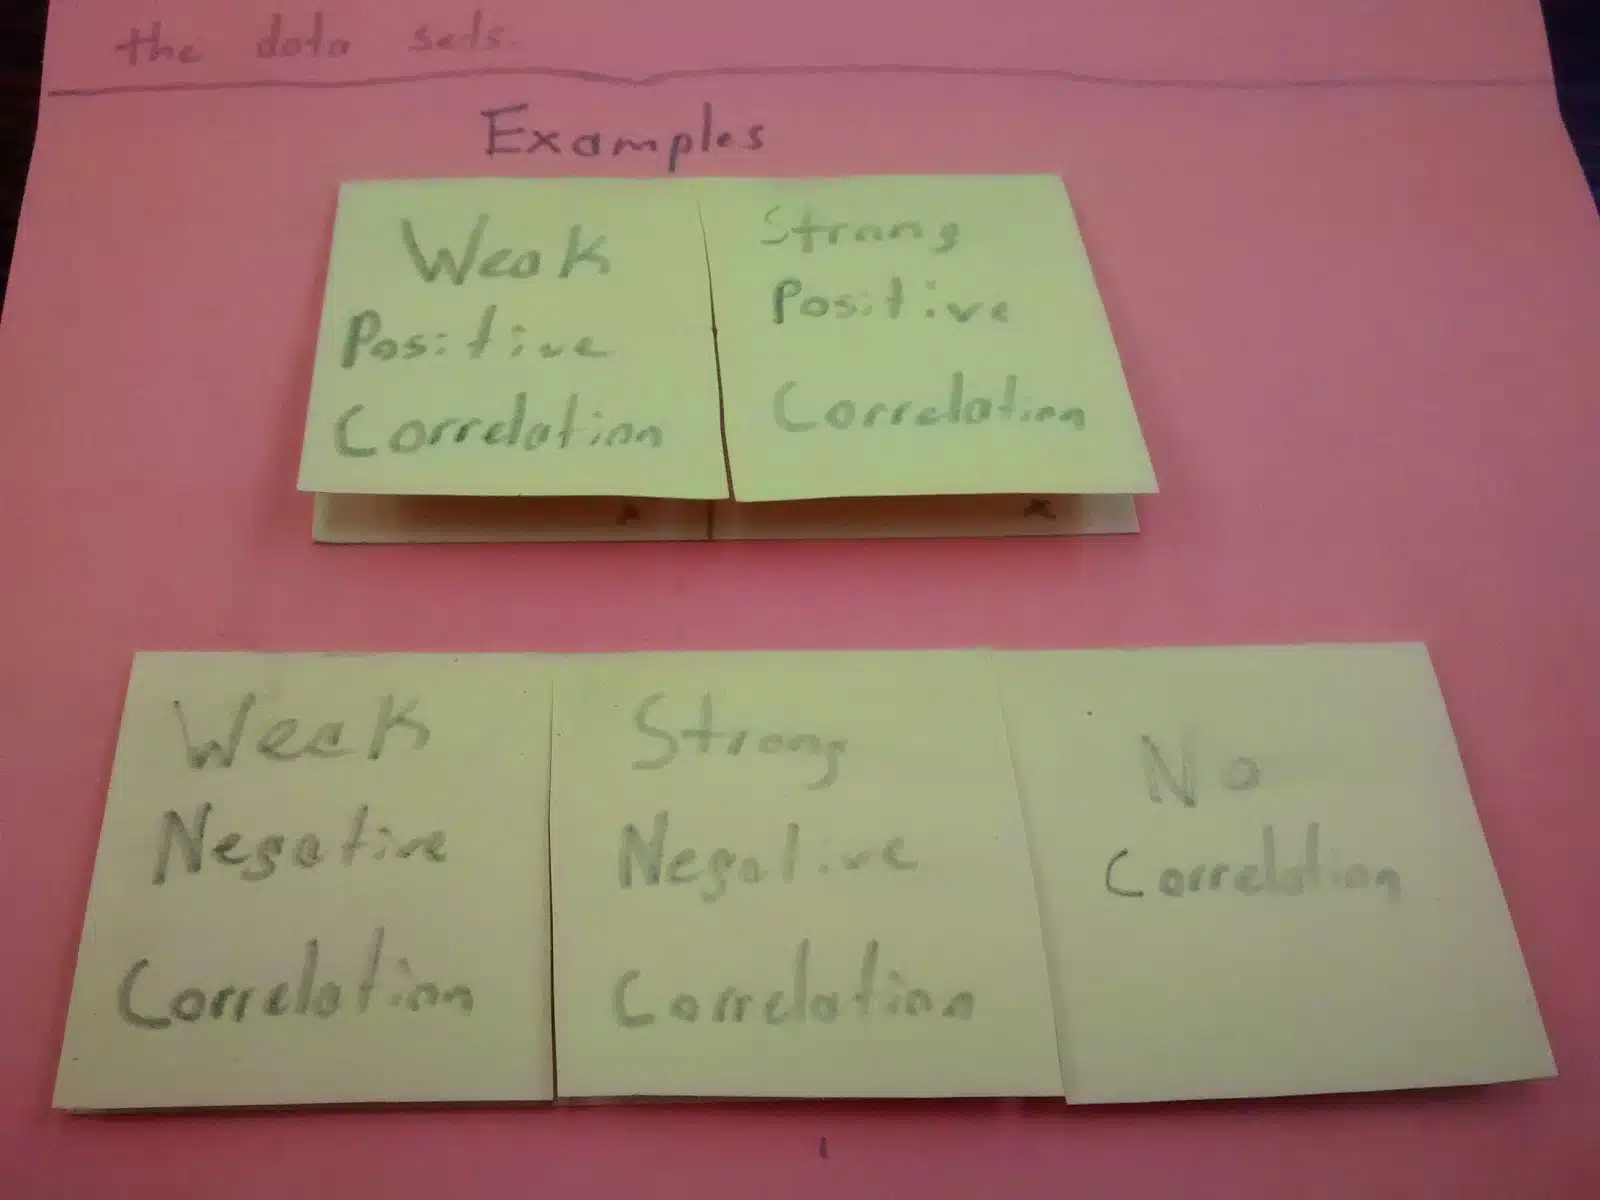 the data sets.
Examples
Weak
Positive
Correlation
Strong
Positive
Correlation
x
x
Weak
Negative
Correlation
Strong
Negative
Correlation
No
Correlation